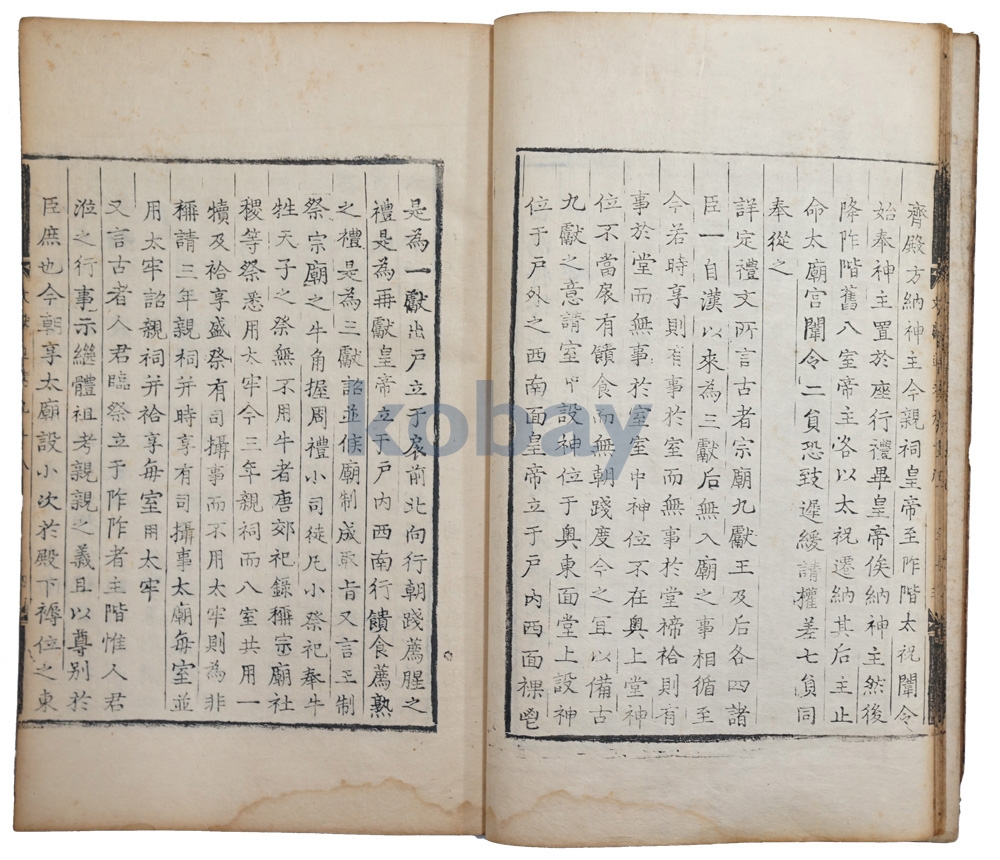 齊殿方納神主今親祠皇帝至阼階太祝闈令
始奉神主置於座行禮畢皇帝俟納神主然後
降阼階舊八室帝主各以太祝遷納其后主止
命太廟宮闈令二負恐致遲緩請權差七負同
奉從之
詳定禮文所言古者宗廟九獻王及后各四諸
臣一自漢以來為三獻后無入廟之事相循至
今若時享則有事於室而無事於堂禘祫則有
事於堂而無事於室室中神位不在奧上堂神
位不當扆有饋食而無朝踐度今之宜以備古
九獻之意請室中設神位于奧東面堂上設神
位于戶外之西南面皇帝立于戶內西面祼鬯
是為一獻出戶立于扆前北向行朝踐薦腥之
禮是為再獻皇帝立于戶內西南行饋食薦熟
之禮是為三獻詔並候廟制成取旨又言王制
祭宗廟之牛角握周禮小司徒凡小祭祀奉牛
牲天子之祭無不用牛者唐郊祀錄稱宗廟社
稷等祭悉用太牢今三年親祠而八室共用一
犢及祫享盛祭有司攝事而不用太牢則為非
稱請三年親祠并時享有司攝事太廟每室並
用太牢詔親祠并祫享每室用太牢
又言古者人君臨祭立于阼阼者主階惟人君
涖之行事示繼體祖考親親之義且以尊別於
臣庶也今朝享太廟設小次於殿下褥位之東
kobay